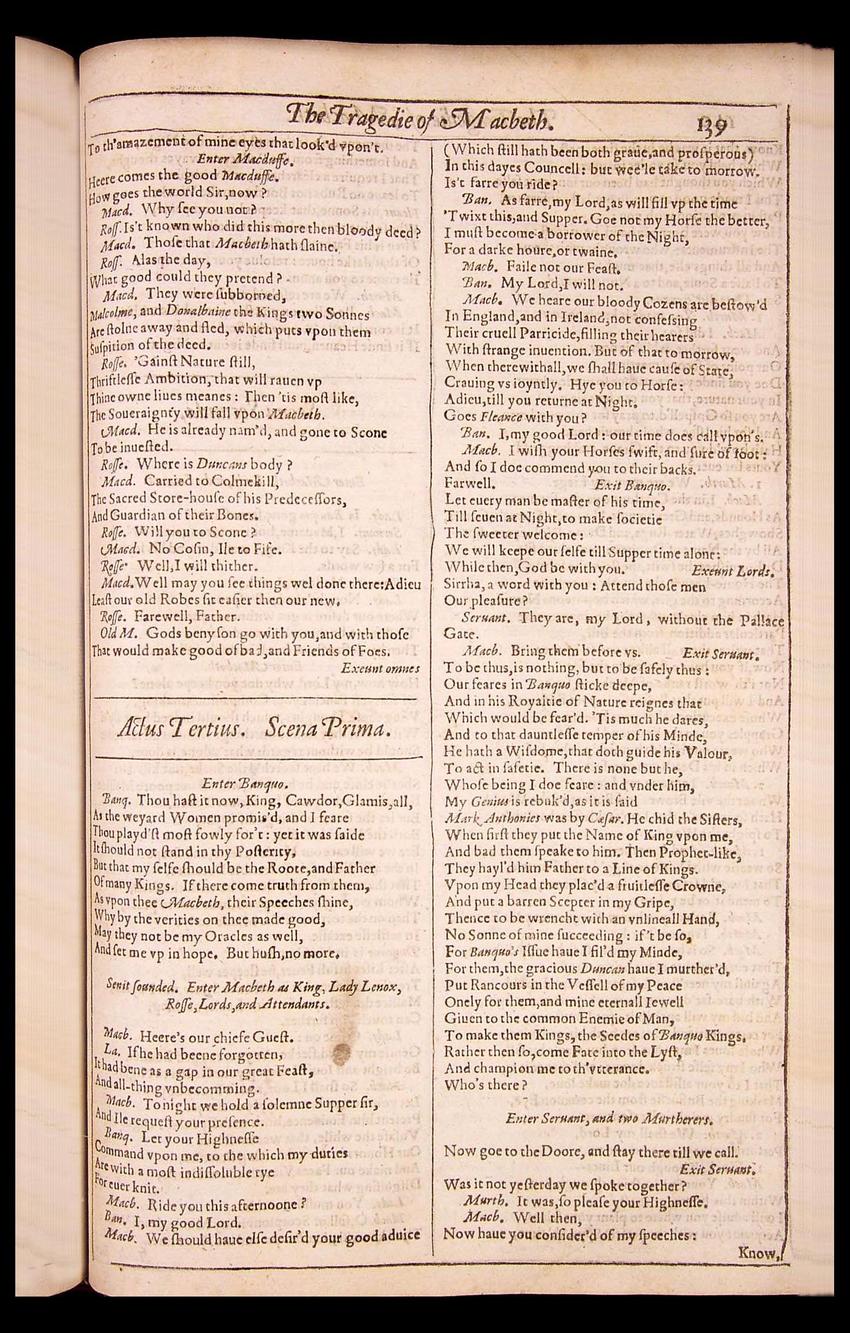 The Tragedie of Macbeth. 139
To th'amazement of mine eyes that look'd vpon't.
Enter Macduffe.
Heere comes the good Macduffe.
How goes the world Sir, now?
Macd. Why ſee you not?
Roſſ. Is't known who did this more then bloody deed?
Macd. Thoſe that Macbeth hath ſlaine.
Roſſ. Alas the day,
What good could they pretend?
Macd. They were ſubborned,
Malcolme, and Donalbaine the Kings two Sonnes
Are ſtolne away and fled, which puts vpon them
Suſpition of the deed.
Roſſe. 'Gainſt Nature ſtill,
Thriftleſſe Ambition, that will rauen vp
Thine owne liues meanes: Then 'tis moſt like,
The Soueraignty will fall vpon Macbeth.
Macd. He is already nam'd, and gone to Scone
To be inueſted.
Roſſe. Where is Duncans body?
Macd. Carried to Colmekill,
The Sacred Store-houſe of his Predeceſſors,
And Guardian of their Bones.
Roſſe. Will you to Scone?
Macd. No Coſin, Ile to Fife.
Roſſe. Well, I will thither.
Macd. Well may you ſee things wel done there: Adieu
Leaſt our old Robes ſit eaſier then our new.
Roſſe. Farewell, Father.
Old M. Gods benyſon go with you, and with thoſe
That would make good of bad, and Friends of Foes.
Exeunt omnes
Actus Tertius. Scena Prima.
Enter Banquo.
Banq. Thou haſt it now, King, Cawdor, Glamis, all,
As the weyard Women promis'd, and I feare
Thou playd'ſt moſt fowly for't: yet it was ſaide
It ſhould not ſtand in thy Poſterity,
But that my ſelfe ſhould be the Roote, and Father
Of many Kings. If there come truth from them,
As vpon thee Macbeth, their Speeches ſhine,
Why by the verities on thee made good,
May they not be my Oracles as well,
And ſet me vp in hope. But huſh, no more.
Senit ſounded. Enter Macbeth as King, Lady Lenox,
Roſſe, Lords, and Attendants.
Macb. Heere's our chiefe Gueſt.
La. If he had beene forgotten,
It had bene as a gap in our great Feaſt,
And all-thing vnbecomming.
Macb. To night we hold a ſolemne Supper ſir,
And Ile requeſt your preſence.
Banq. Let your Highneſſe
Command vpon me, to the which my duties
Are with a moſt indiſſoluble tye
For euer knit.
Macb. Ride you this afternoone?
Ban. I, my good Lord.
Macb. We ſhould haue elſe deſir'd your good aduice
(Which ſtill hath been both graue, and proſperous)
In this dayes Councell: but wee'le take to morrow.
Is't farre you ride?
Ban. As farre, my Lord, as will fill vp the time
'Twixt this, and Supper. Goe not my Horſe the better,
I muſt become a borrower of the Night,
For a darke houre, or twaine.
Macb. Faile not our Feaſt.
Ban. My Lord, I will not.
Macb. We heare our bloody Cozens are beſtow'd
In England, and in Ireland, not confeſſing
Their cruell Parricide, filling their hearers
With ſtrange inuention. But of that to morrow,
When therewithall, we ſhall haue cauſe of State,
Crauing vs ioyntly. Hye you to Horſe:
Adieu, till you returne at Night.
Goes Fleance with you?
Ban. I, my good Lord: our time does call vpon's.
Macb. I wiſh your Horſes ſwift, and ſure of foot:
And ſo I doe commend you to their backs.
Farwell. Exit Banquo.
Let euery man be maſter of his time,
Till ſeuen at Night, to make ſocietie
The ſweeter welcome:
We will keepe our ſelfe till Supper time alone:
While then, God be with you. Exeunt Lords.
Sirrha, a word with you: Attend thoſe men
Our pleaſure?
Seruant. They are, my Lord, without the Pallace
Gate.
Macb. Bring them before vs. Exit Seruant.
To be thus, is nothing, but to be ſafely thus:
Our feares in Banquo ſticke deepe,
And in his Royaltie of Nature reignes that
Which would be fear'd. 'Tis much he dares,
And to that dauntleſſe temper of his Minde,
He hath a Wiſdome, that doth guide his Valour,
To act in ſafetie. There is none but he,
Whoſe being I doe feare: and vnder him,
My Genius is rebuk'd, as it is ſaid
Mark Anthonies was by Cæſar. He chid the Siſters,
When firſt they put the Name of King vpon me,
And bad them ſpeake to him. Then Prophet-like,
They hayl'd him Father to a Line of Kings.
Vpon my Head they plac'd a fruitleſſe Crowne,
And put a barren Scepter in my Gripe,
Thence to be wrencht with an vnlineall Hand,
No Sonne of mine ſucceeding: if't be ſo,
For Banquo's Iſſue haue I fil'd my Minde,
For them, the gracious Duncan haue I murther'd,
Put Rancours in the Veſſell of my Peace
Onely for them, and mine eternall Iewell
Giuen to the common Enemie of Man,
To make them Kings, the Seedes of Banquo Kings.
Rather then ſo, come Fate into the Lyſt,
And champion me to th'vtterance.
Who's there?
Enter Seruant, and two Murtherers.
Now goe to the Doore, and ſtay there till we call.
Exit Seruant.
Was it not yeſterday we ſpoke together?
Murth. It was, ſo pleaſe your Highneſſe.
Macb. Well then,
Now haue you conſider'd of my ſpeeches:
Know,